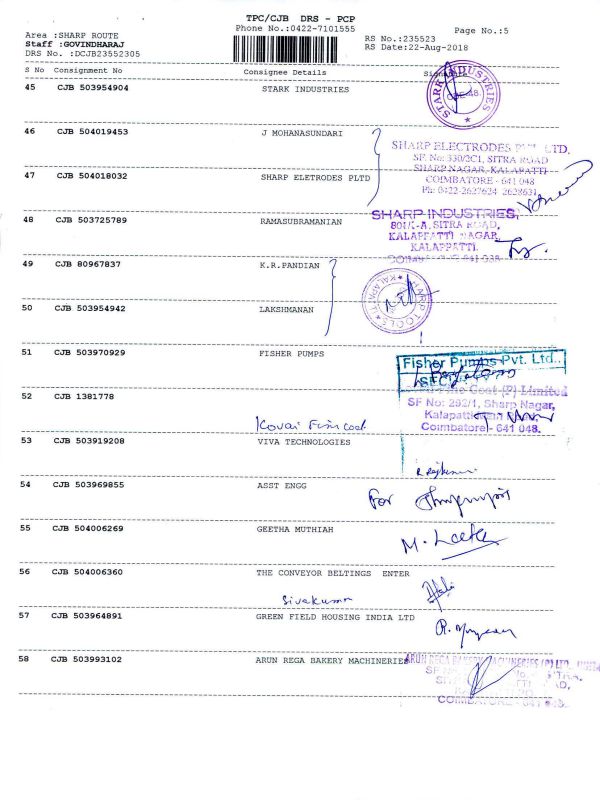 TPC/CJB DRS - PCP
Phone No.:0422-7101555
Page No.:5
Area :SHARP ROUTE
Staff :GOVINDHARAJ
DRS No. :DCJB23552305
RS No.:235523
RS Date:22-Aug-2018
S No Consignment No Consignee Details
45 CJB 503954904 STARK INDUSTRIES
STARK INDUSTRIES
46 CJB 504019453 J MOHANASUNDARI
SHARP ELECTRODES PVT. LTD.
SF. No: 330/2C1, SITRA ROAD
SHARP NAGAR, KALAPATTI
COIMBATORE - 641 048
Ph: 0422-2627624 2628631
47 CJB 504018032 SHARP ELETRODES PLTD
48 CJB 503725789 RAMASUBRAMANIAN
SHARP INDUSTRIES,
801/1-A, SITRA ROAD,
KALAPPATTI NAGAR,
KALAPPATTI.
49 CJB 80967837 K.R.PANDIAN
SHARP TOOLS
50 CJB 503954942 LAKSHMANAN
51 CJB 503970929 FISHER PUMPS
Fisher Pumps Pvt. Ltd.,
52 CJB 1381778
Kovai Fine Coat
Fine Coat (P) Limited
SF No: 292/1, Sharp Nagar,
Kalapatti
Coimbatore - 641 048.
53 CJB 503919208 VIVA TECHNOLOGIES
54 CJB 503969855 ASST ENGG
For
55 CJB 504006269 GEETHA MUTHIAH
M.
56 CJB 504006360 THE CONVEYOR BELTINGS ENTER
Sivakumar
57 CJB 503964891 GREEN FIELD HOUSING INDIA LTD
58 CJB 503993102 ARUN REGA BAKERY MACHINERIES
ARUN REGA BAKERY MACHINERIES (P) LTD.,
COIMBATORE - 641